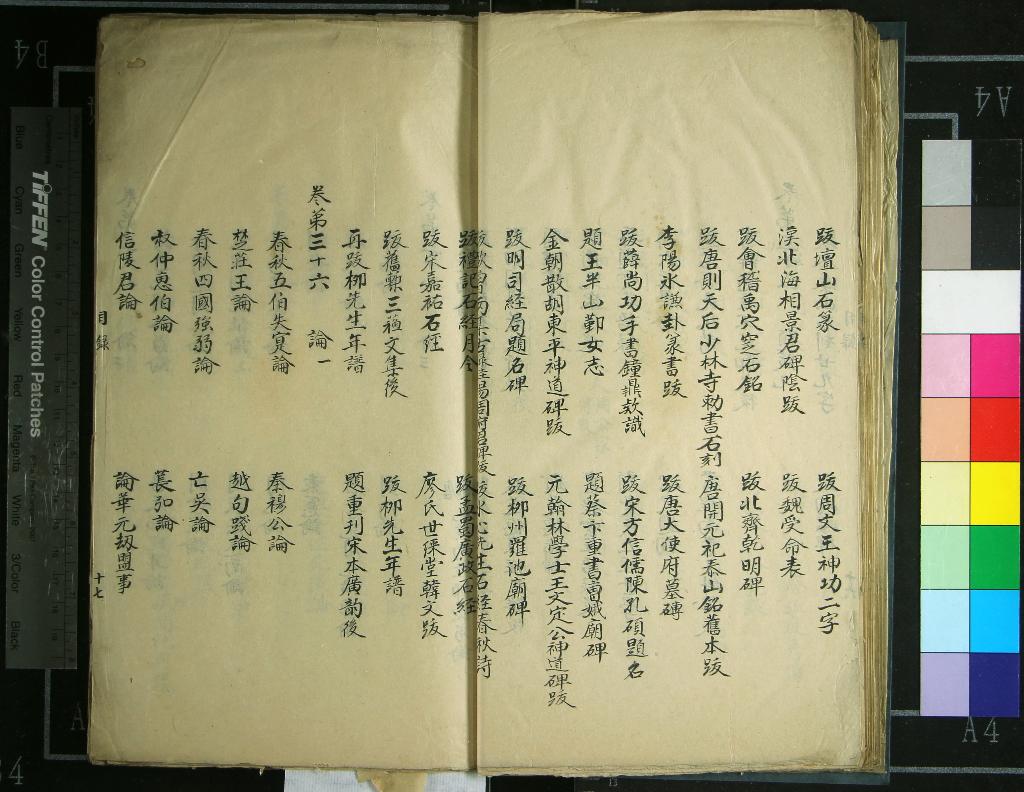 跋壇山石篆
跋周文王神功二字
漢北海相景君碑陰跋
跋魏受命表
跋會稽禹穴窆石銘
跋北齊乾明碑
跋唐則天后少林寺勅書石刻
唐開元祀泰山銘舊本跋
李陽氷謙卦篆書跋
跋唐大使府墓磚
跋薛尚功手書鐘鼎欵識
跋宋方信儒陳孔碩題名
題王半山鄞女志
題蔡卞重書曹娥廟碑
金朝散胡東平神道碑跋
元翰林學士王文定公神道碑跋
跋明司經局題名碑
跋柳州羅池廟碑
跋禮記石經月令
跋孟蜀廣政石經
跋宋嘉祐石經
廖氏世綵堂韓文跋
跋舊槧三種文集後
跋柳先生年譜
再跋柳先生年譜
題重刊宋本廣韵後
卷第三十六
論一
春秋五伯失寔論
秦穆公論
楚莊王論
越句踐論
春秋四國强弱論
亡吳論
叔仲惠伯論
萇弘論
信陵君論
論華元刼盟事
目錄
十七
TIFFEN Color Control Patches
Blue
Cyan
Green
Yellow
Red
Magenta
White
3/Color
Black
B4
A4
A4